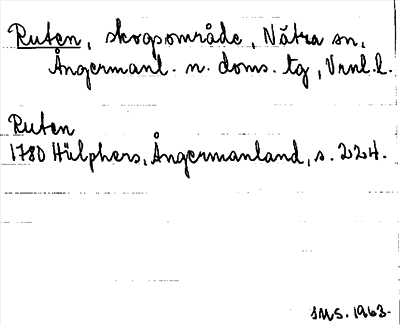 Ruten, skogsområde, Nätra sn,
Ångermanl. n. doms. tg, Vrnl. l.
Ruten
1780 Hülphers, Ångermanland, s. 224.
SMS. 1963.